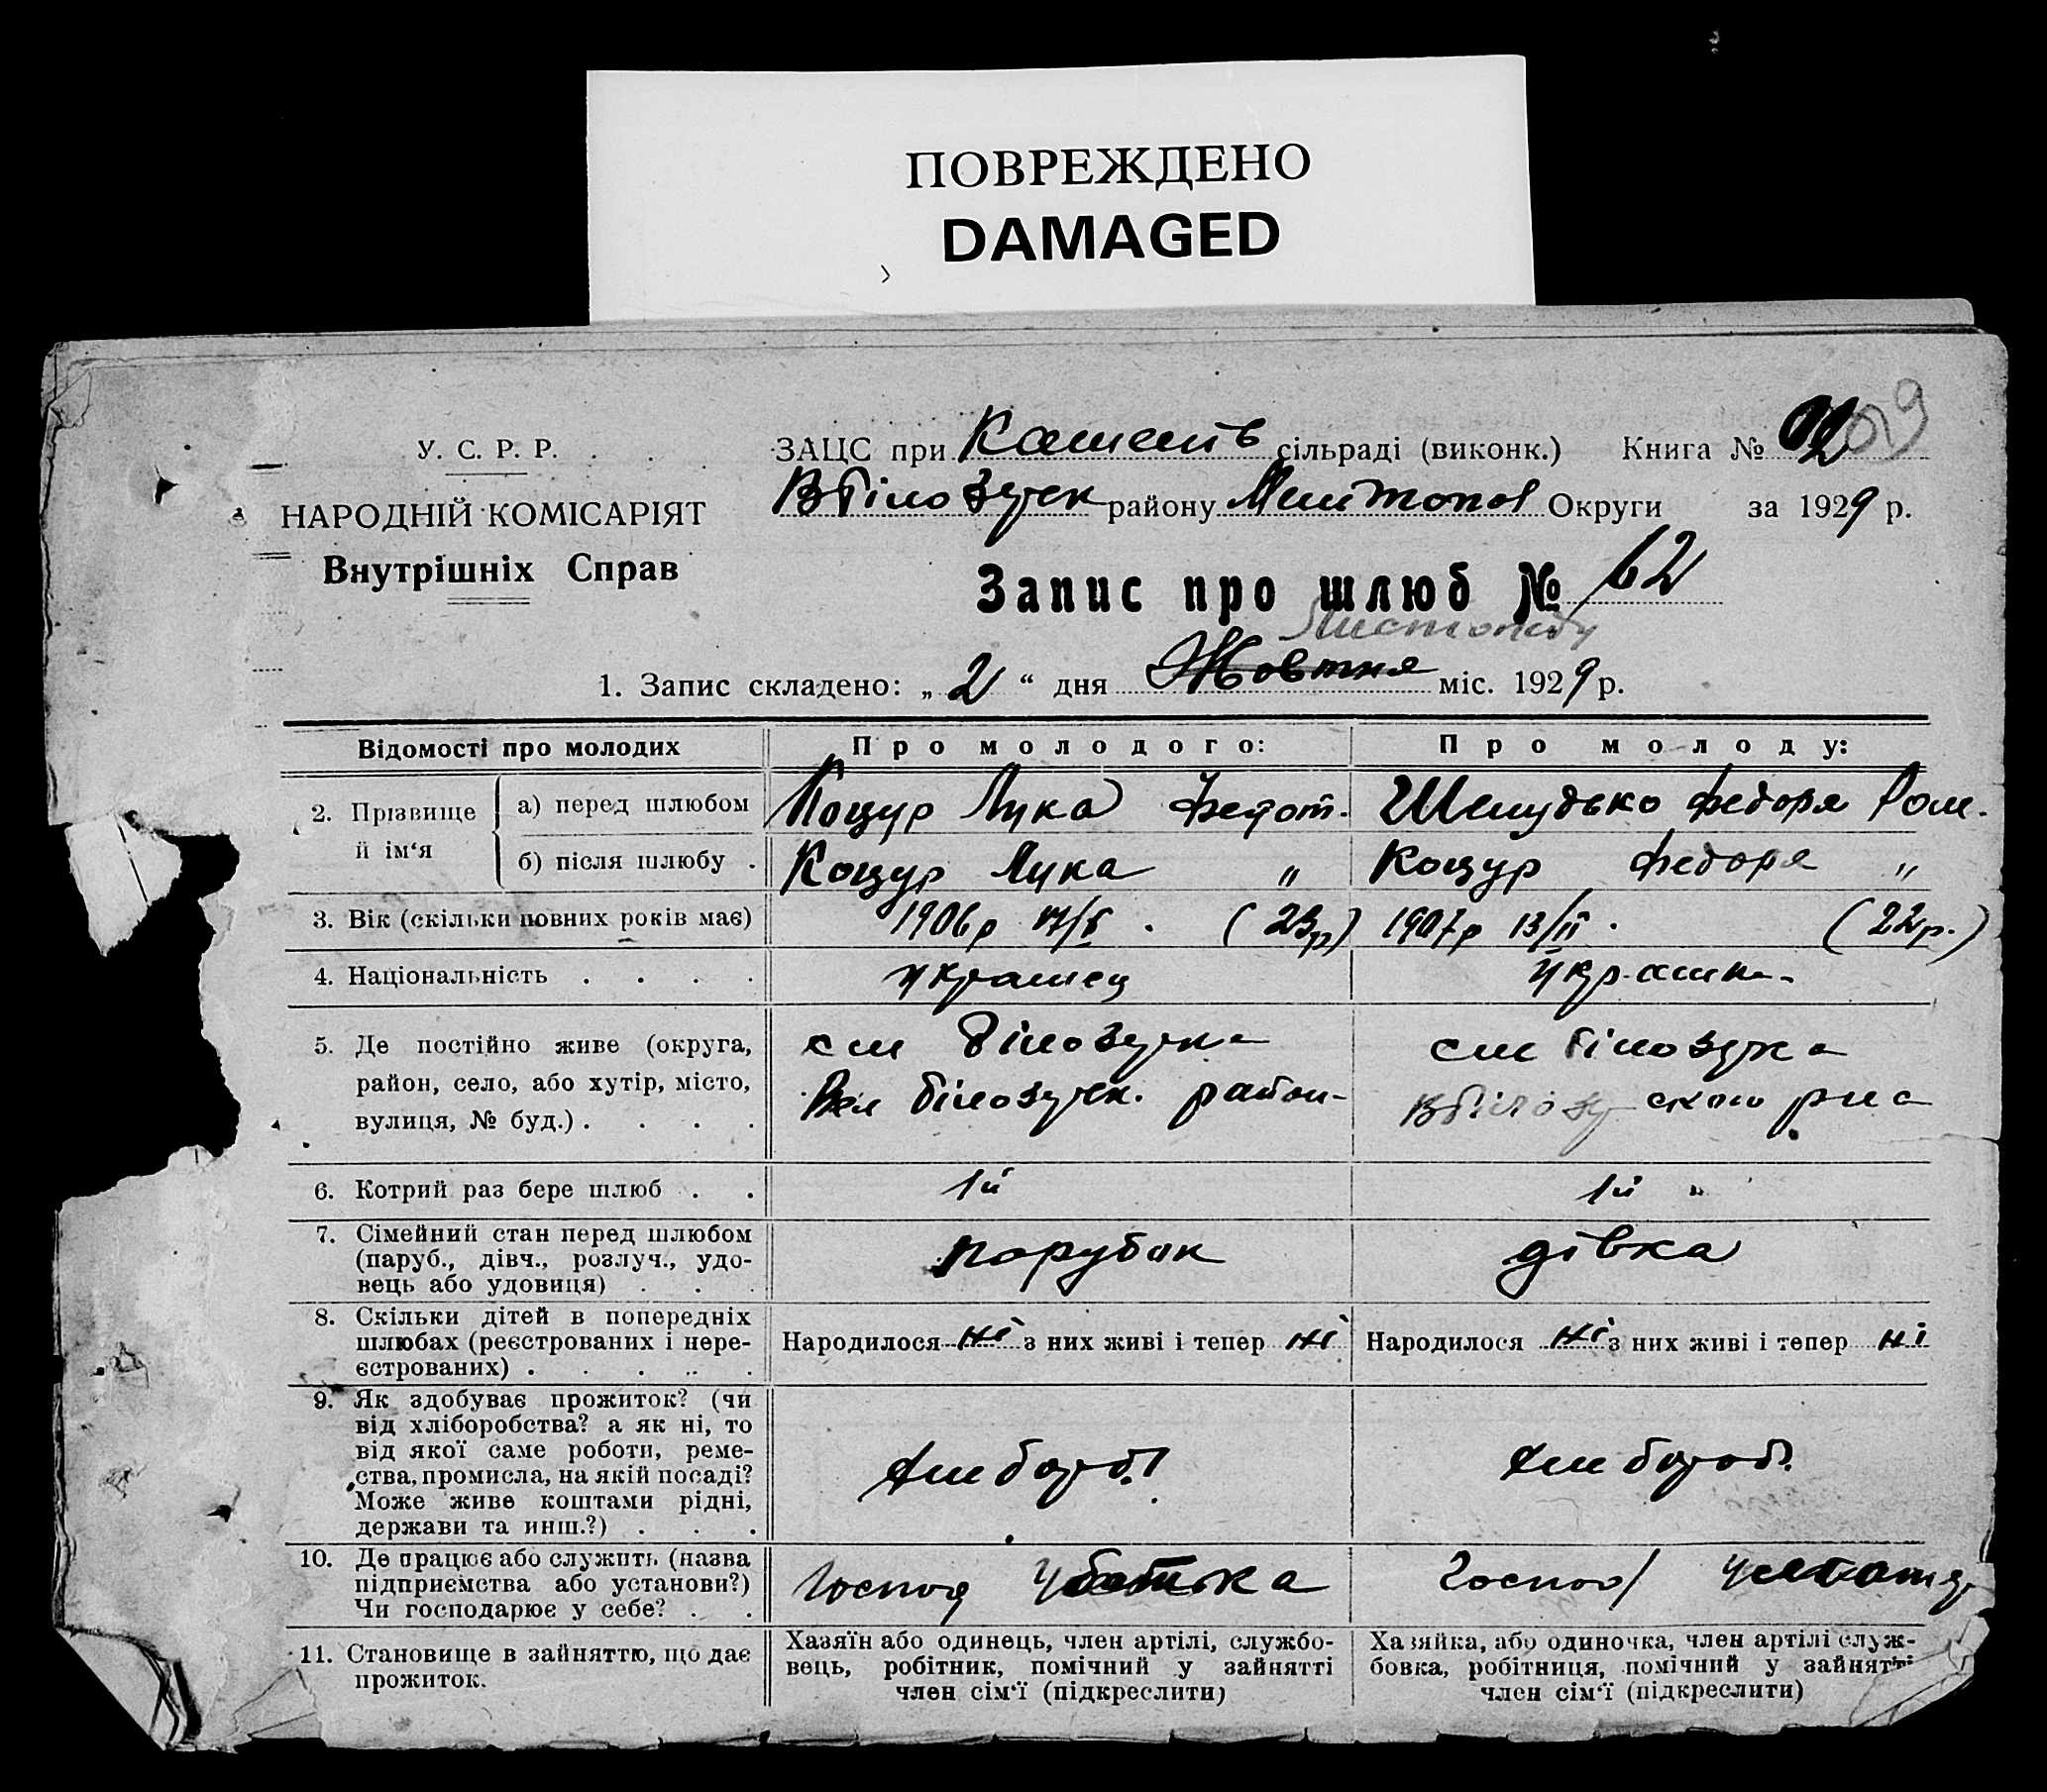 ПОВРЕЖДЕНО
DAMAGED
У. С. Р. Р.
НАРОДНІЙ КОМІСАРІЯТ
Внутрішніх Справ
ЗАЦС при сільраді (виконк.) Книга №
району Округи за 1929 р.
Запис про шлюб № 62
Листопаду
1. Запис складено: „ 2 “ дня Жовтня міс. 1929 р.
Відомості про молодих Про молодого: Про молоду:
2. Прізвище й ім‘я
а) перед шлюбом Коцур Лука Федот. Шелудько Федора Ром.
б) після шлюбу . Коцур Лука „ Коцур Федора „
3. Вік (скільки повних років має) 1906р (23р) 1907р 13/ІІ . (22р.)
4. Національність . . . . українец
5. Де постійно живе (округа,
район, село, або хутір, місто,
вулиця, № буд.) . . . .
Вел білозерк. район
6. Котрий раз бере шлюб . . 1й 1й „
7. Сімейний стан перед шлюбом
(паруб., дівч., розлуч., удо-
вець або удовиця) . . .
парубок дівка
8. Скільки дітей в попередніх
шлюбах (реєстрованих і нере-
єстрованих) . . . . .
Народилося ні з них живі і тепер ні Народилося ні з них живі і тепер ні
9. Як здобуває прожиток? (чи
від хліборобства? а як ні, то
від якої саме роботи, реме-
ства, промисла, на якій посаді?
Може живе коштами рідні,
держави та инш.?) . . .
хлібороб. хлібороб.
10. Де працює або служить (назва
підприємства або установи?)
Чи господарює у себе? . .
Господ у батька Господ
11. Становище в зайняттю, що дає
прожиток.
Хазяїн або одинець, член артілі, службо-
вець, робітник, помічний у зайнятті
член сім‘ї (підкреслити)
Хазяйка, або одиночка, член артілі служ-
бовка, робітниця, помічний у зайнятті
член сім‘ї (підкреслити)